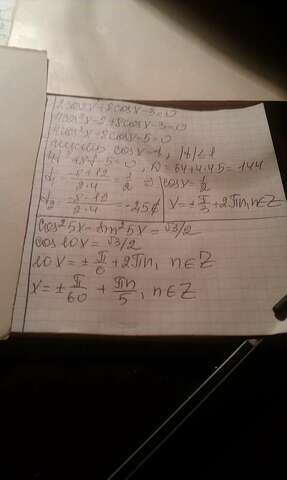 2cos2x+8cosx-3=0
4cos²x-2+8cosx-3=0
4cos²x+8cosx-5=0
пусть cosx=t, |t|≤1
4t²+8t-5=0, D=64+4·4·5=144
t₁=(-8+12)/(2·4)=1/2 ⇒ cosx=1/2
t₂=(-8-12)/(2·4)=-2,5∉ x=±π/3+2πn, n∈Z
cos²5x-sin²5x=√3/2
cos10x=√3/2
10x=±π/6+2πn, n∈Z
x=±π/60+πn/5, n∈Z